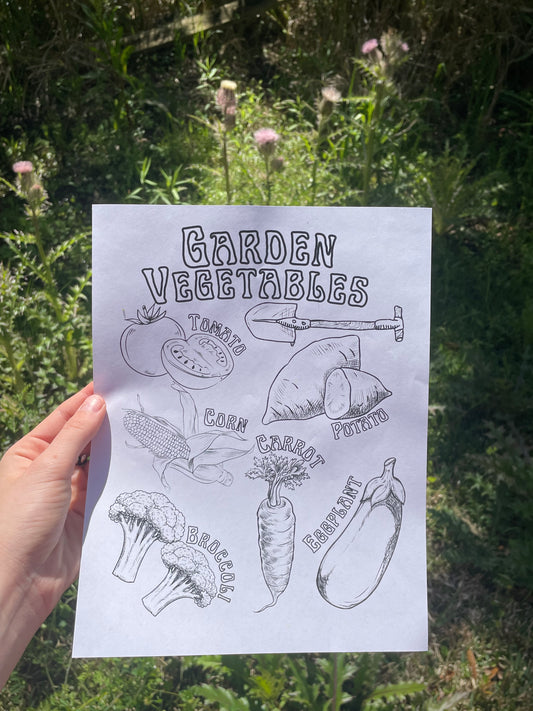 GARDEN
VEGETABLES
TOMATO
CORN
POTATO
CARROT
EGGPLANT
BROCCOLI